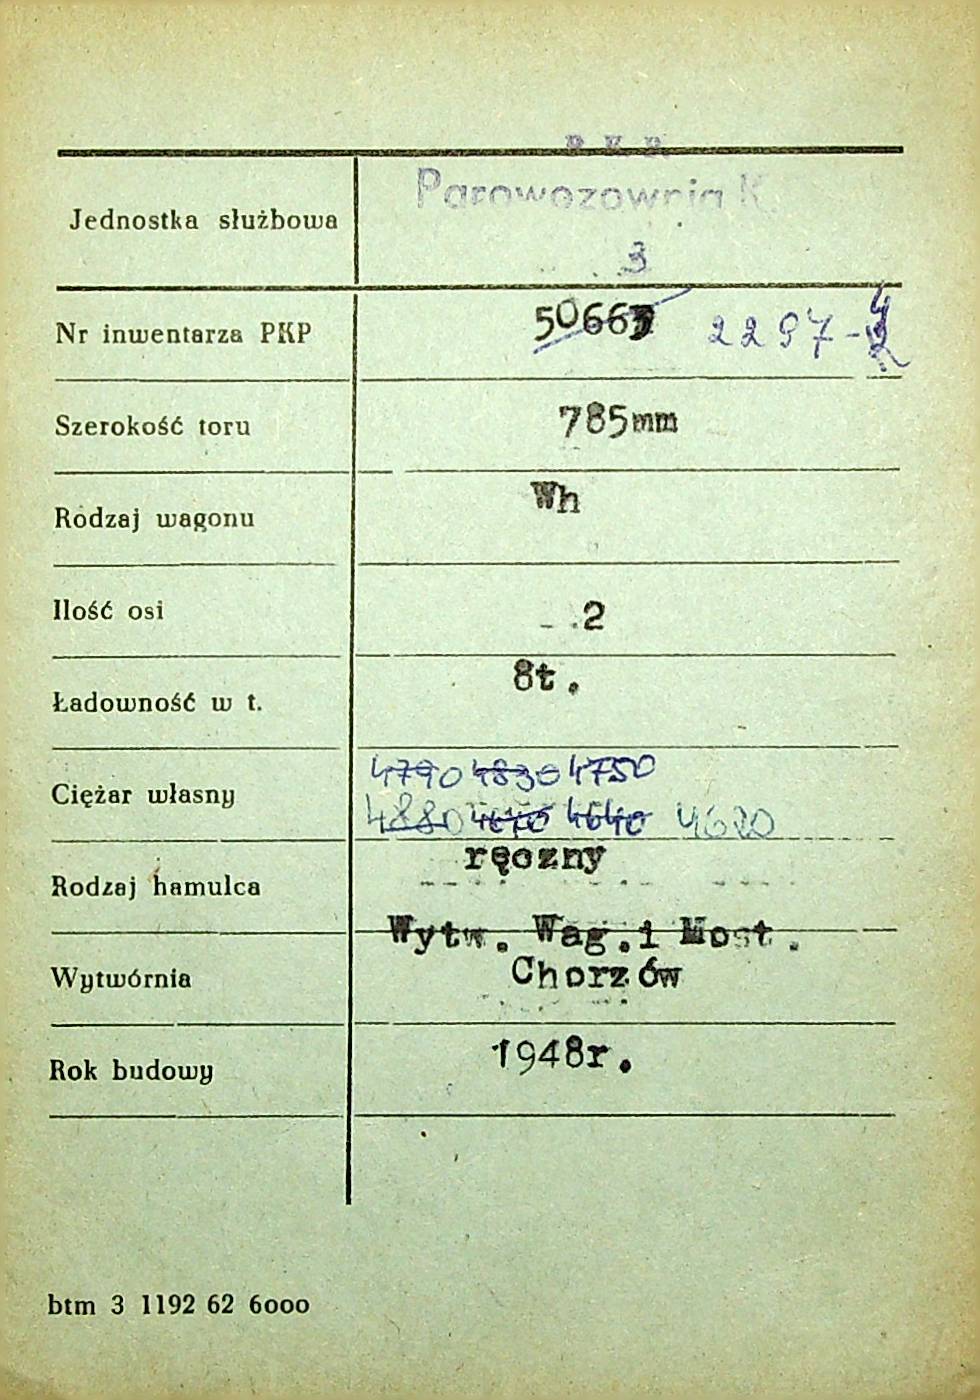 P. K. P.
Parowozownia K
3
Jednostka służbowa
Nr inwentarza PKP 50663 2297-
Szerokość toru 785mm
Rodzaj wagonu Wh
Ilość osi 2
Ładowność w t. 8t.
4790 4830 4750
Ciężar własny
4880 4670 4640 4620
Rodzaj hamulca ręczny
Wytw. Wag. i Most.
Wytwórnia Chorzów
Rok budowy 1948r.
btm 3 1192 62 6000